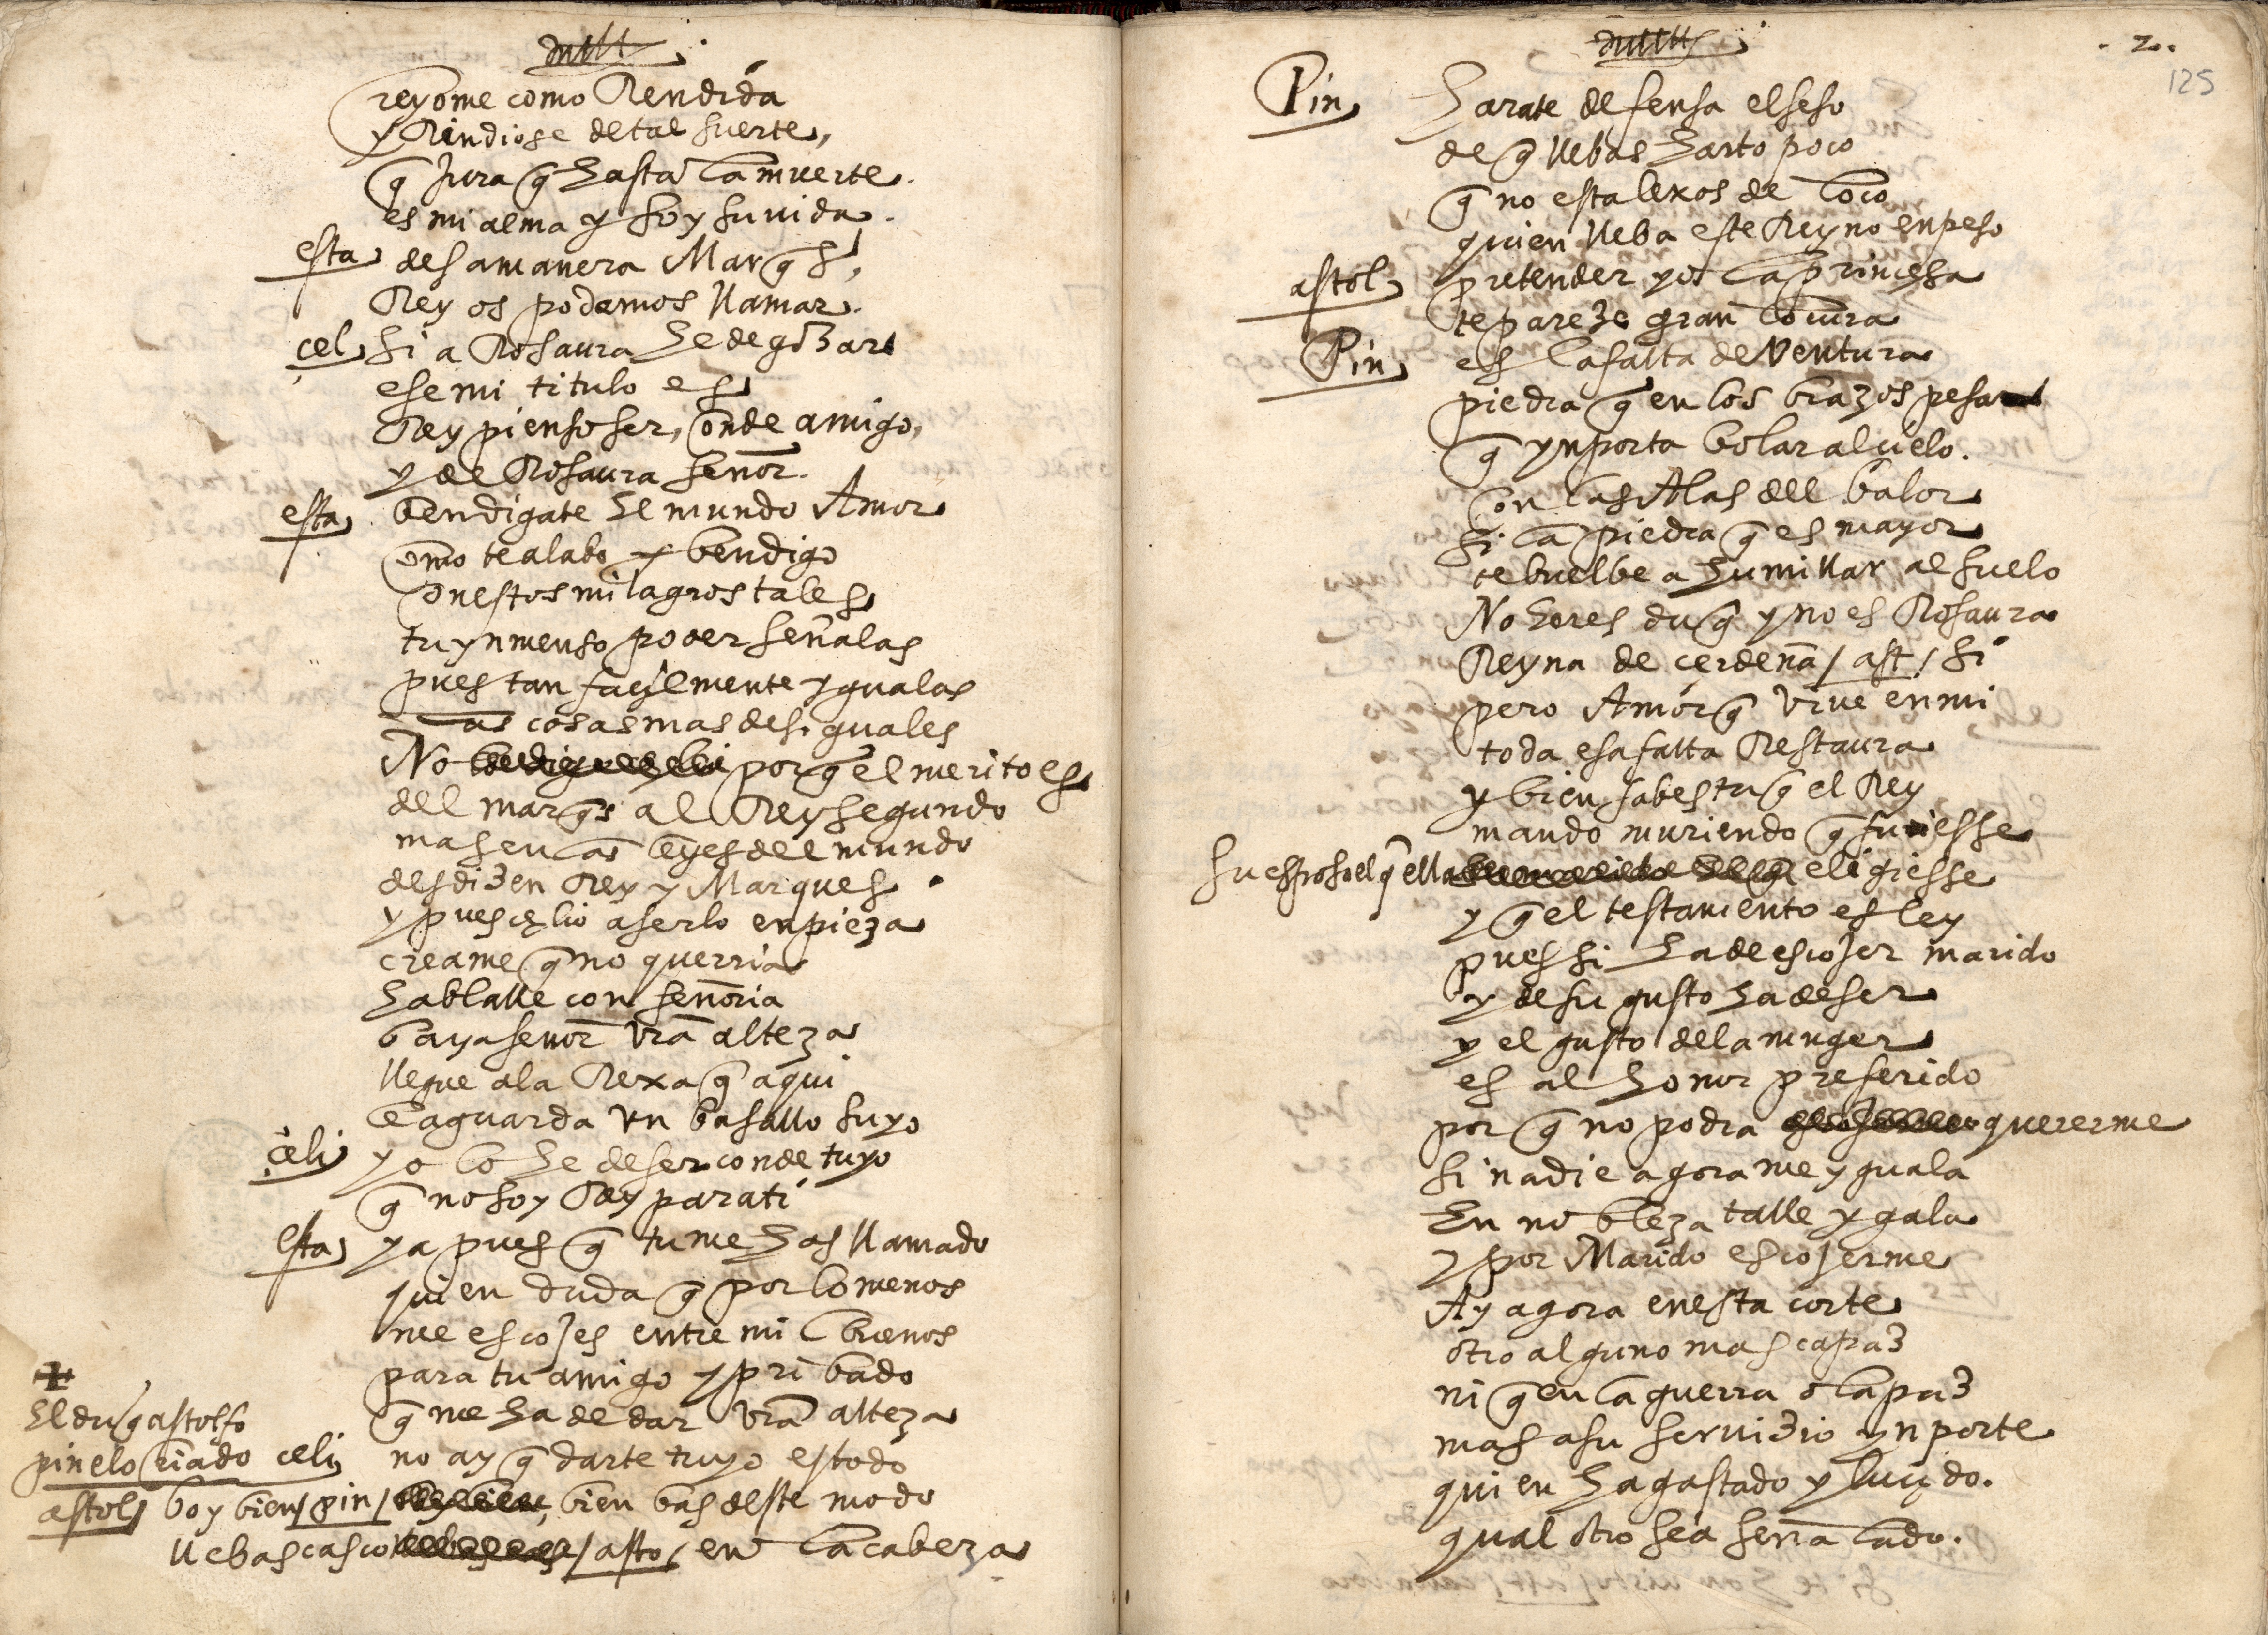 reyome como Rendida
y Rindiose de tal suerte
q̃ jura q̃ hasta la muerte
es mi alma y soy su vida
esta desa manera Marq̃s
Rey os podamos llamar
cel si a Rosaura he de gozar
ese mi titulo es
Rey pienso ser, conde amigo,
y de Rosaura señor
esta bendigate el mundo Amor
como te alabo y bendigo
con estos milagros tales
tu ynmenso poder señalas
pues tan façilmente ygualas
las cosas mas desiguales
No porq̃ el merito es
del marq̃s al Rey segundo
mas en las leyes del mundo
desdizen Rey y Marques
y pues çelio a serlo enpieza
creame q̃ no querria
hablalle con señoria
baya señor vrã alteza
llegue a la Rexa q̃ aqui
le aguarda vn basallo suyo
çeli yo lo he de ser conde tuyo
q̃ no soy Rey para ti
esta ya pues q̃ tu me has llamado
quien duda q̃ por lo menos
me escojes entre mil buenos
para tu amigo y pribado
q̃ me ha de dar vrã alteza
El duq̃ astolfo
pinelo criado celi no ay q̃ darte tuyo es todo
astol boy bien / pin / bien bas deste modo
llebas casco / asto / en la cabeza
.2.
125
Pin Harate defensa el seso
de q̃ llebas harto poco
q̃ no esta lexos de loco
quien lleba este Reyno en peso
astol pretender yo la princesa
te pareze gran locura
Pin es la falta de ventura
piedra q̃ en los brazos pesa
q̃ ynporta bolar al çielo
con las Alas del balor
si la piedra q̃ es mayor
te buelbe a humillar al suelo
No heres duq̃ y no es Rosaura
Reyna de cerdeña / ast / si
pero Amor q̃ vive en mi
toda esa falta Restaura
y bien sabes tu q̃ el Rey
mando muriendo q̃ fuesse
su esposo el q̃ ella eligiesse
y q̃ el testamento es ley
pues si ha de escojer marido
y de su gusto ha de ser
y el gusto de la muger
es al honor preferido
por q̃ no podra quererme
si nadie agora me yguala
En nobleza talle y gala
y por Marido escojerme
Ay agora en esta corte
otro alguno mas capaz
ni q̃ en la guerra o la paz
mas a su servizio ynporte
quien ha gastado y luçido
qual otro sea señalado.